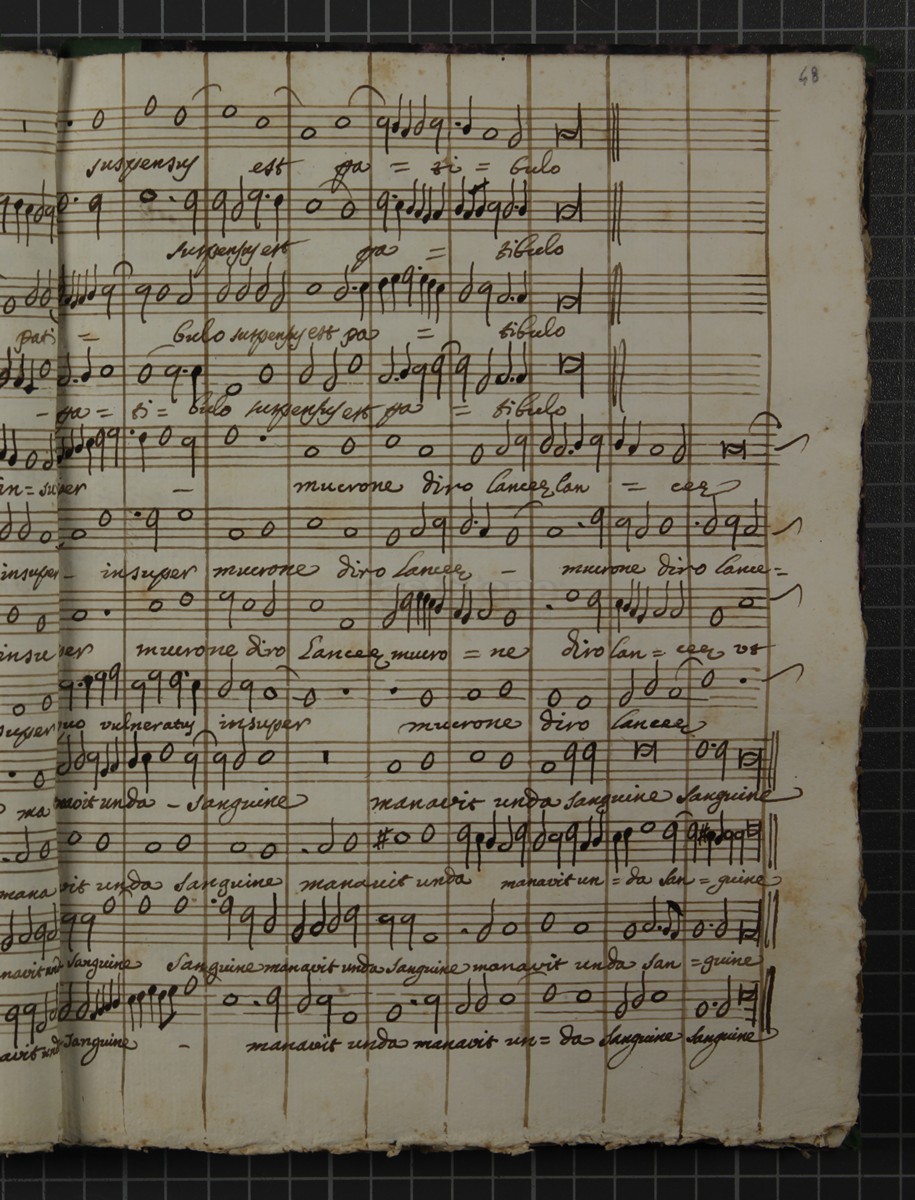 48
suspensus est pa = ti = bulo
suspensus est pa = tibulo
pati = bulo suspensus est pa = tibulo
- pa = ti = bulo suspensus est pa = tibulo
in = super - mucrone diro lanceę lan = ceę
insuper - insuper mucrone diro lanceę - mucrone diro lance =
insuper mucrone diro lanceę mucro = ne diro lan = ceę ut
super quo vulneratus insuper mucrone diro lanceę
manavit unda - sanguine manavit unda sanguine sanguine
manavit unda sanguine manavit unda manavit un = da san = guine
navit und sanguine sanguine manavit unda sanguine manavit unda san = guine
avit und sanguine - manavit unda manavit un = da sanguine sanguine